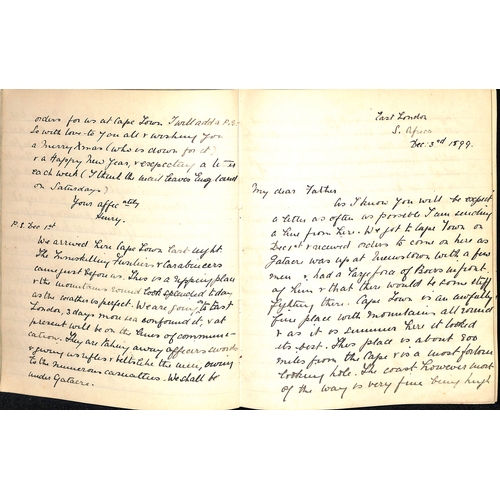 orders for us at Cape Town I will add a P.S.
So with love to you all & wishing you
a Merry Xmas (who is down for it)
& a Happy New Year, & expecting a letter
each week (I think the mail leaves England
on Saturdays)
Yours affec ately
Henry.
P.S. Dec 1st
We arrived here Cape Town last night.
The Inniskilling Fusiliers & Carabineers
came just before us. This is a ripping place
& the mountains round look splendid today
as the weather is perfect. We are going to East
London, 3 days more sea confound it, & at
present will be on the lines of communi-
cation. They are taking away officers swords
& giving us rifles & belts like the men, owing
to the numerous casualties. We shall be
under Gatacre.
East London
S. Africa
Dec. 3rd 1899.
My dear Father
As I know you will be expect
a letter as often as possible I am sending
a line from here. We got to Cape Town on
Dec 1st & received orders to come on here as
Gatacre was up at Queenstown with a few
men & had a large force of Boers in front
of him & that there would be some stiff
fighting there. Cape Town is an awfully
fine place with mountains all round
& as it is summer here it looked
its best. This place is about 800
miles from the Cape & is a most forlorn
looking hole. The coast however most
of the way is very fine being high